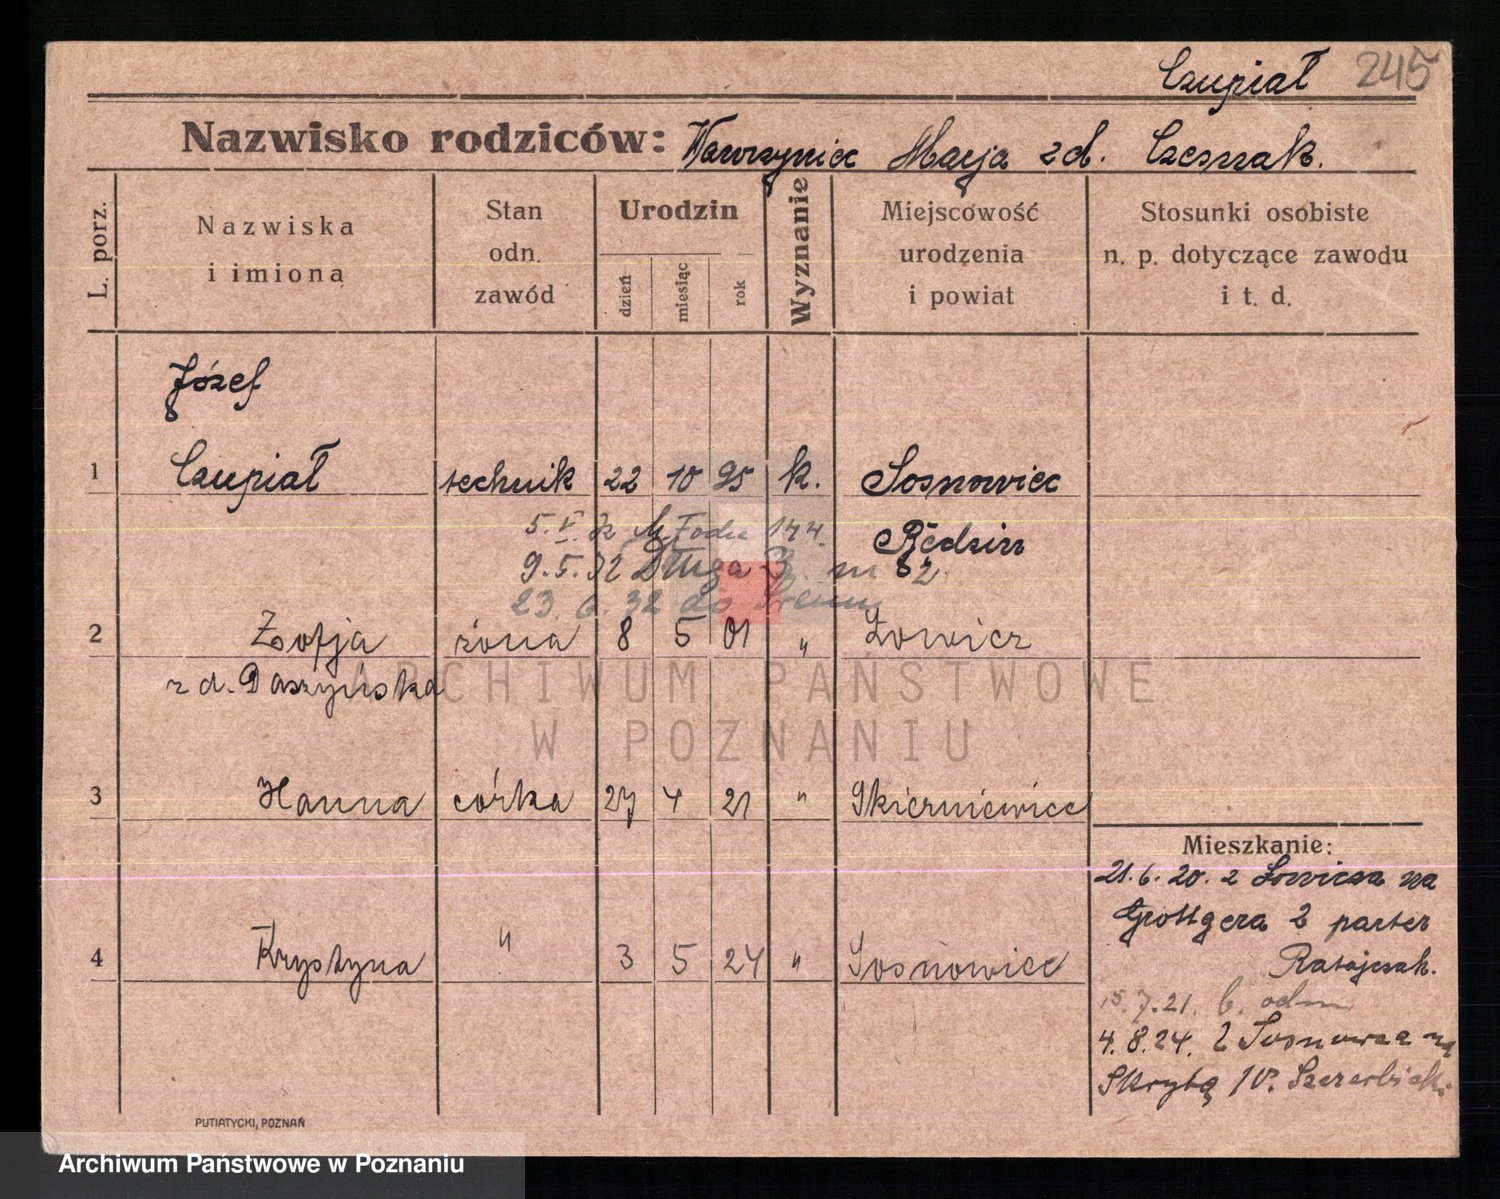 Czupiał 245
Nazwisko rodziców: Wawrzyniec Marja zd. Czeszak.
L. porz.
Nazwiska
i imiona
Stan
odn.
zawód
Urodzin
dzień
miesiąc
rok
Wyznanie
Miejscowość
urodzenia
i powiat
Stosunki osobiste
n. p. dotyczące zawodu
i t. d.
Józef
1 Czupiał technik 22 10 95 k. Sosnowiec
Będzin
5. V. 32 144
9.5.32 Długa 3. m 2
23. 6. 32 do Śremu
2 Zofja żona 8 5 01 " Łowicz
z d. Daszyńska
ARCHIWUM PAŃSTWOWE
W POZNANIU
3 Hanna córka 27 4 21 " Skierniewice
4 Krystyna " 3 5 24 " Sosnowiec
Mieszkanie:
21.6.20. z Łowicza na
Grottgera 2 parter
Ratajczak.
15.7.21.
4.8.24. z Sosnowca na
Skrytą 10. Szczerbicki
PUTIATYCKI, POZNAŃ
Archiwum Państwowe w Poznaniu